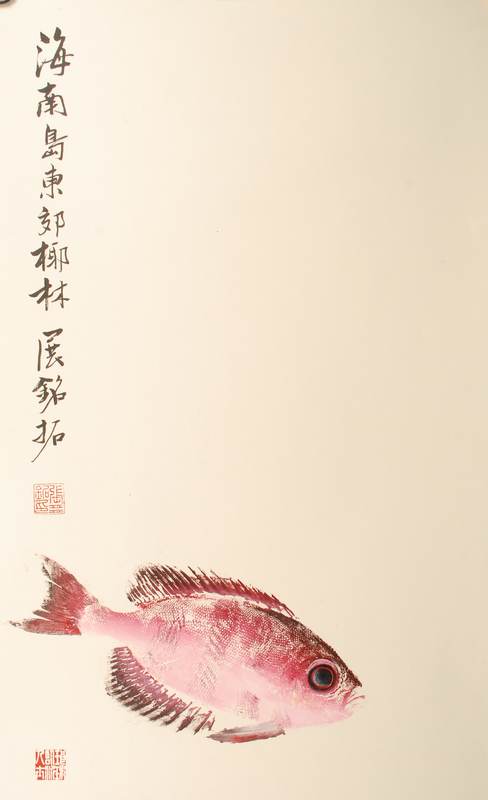 海南島東郊椰林 展銘拓